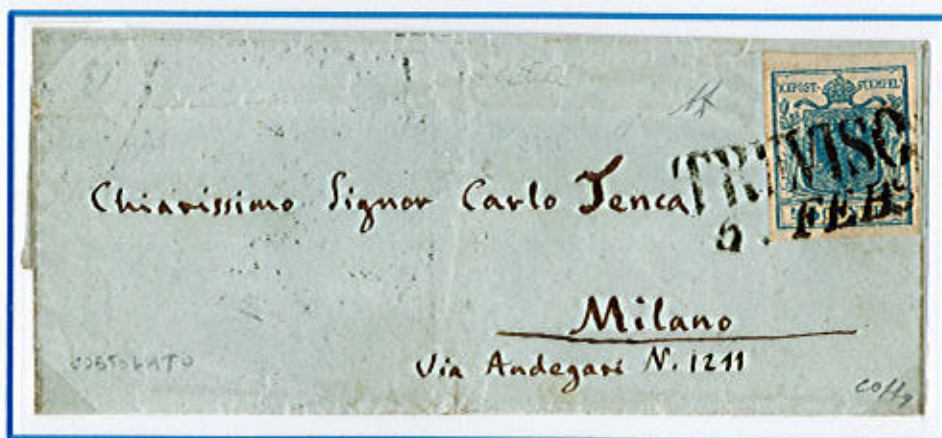 KKPOST-STEMPEL
TREVISO
6. FEB.
Chiarissimo Signor Carlo Tenca
Milano
Via Andegari N. 1211
COSTOLATO